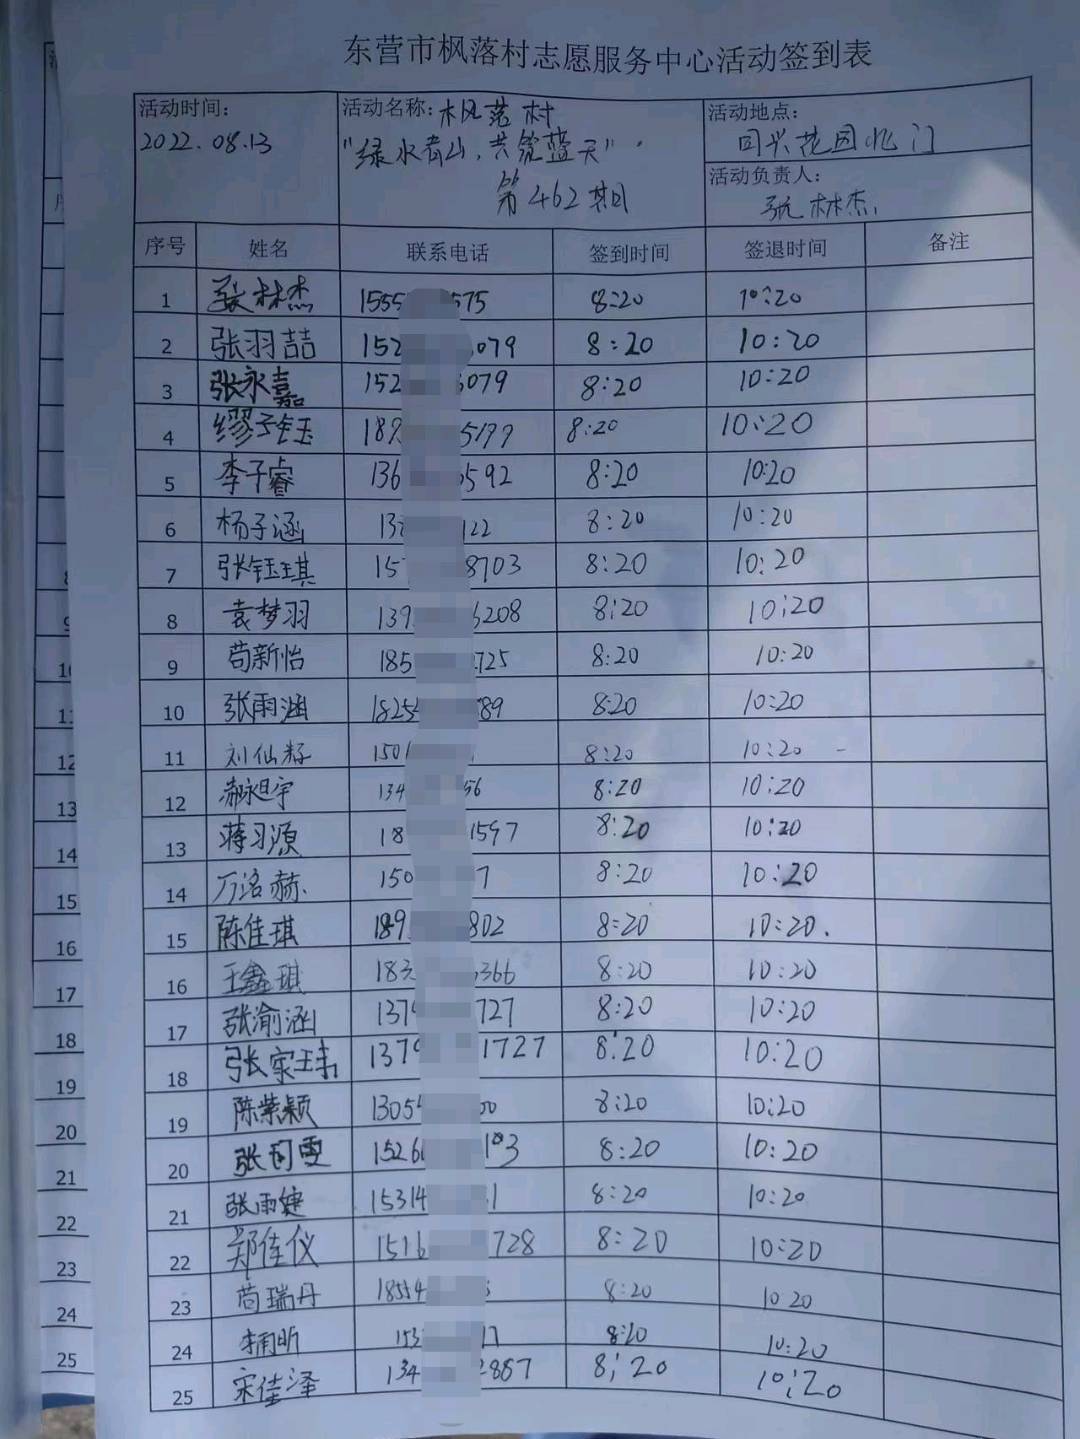 东营市枫落村志愿服务中心活动签到表
活动时间:
2022.08.13
活动名称: 枫落村
"绿水青山,共筑蓝天"
第462期
活动地点:
同兴花园北门
活动负责人:
张林杰
序号 姓名 联系电话 签到时间 签退时间 备注
1 张林杰 1555 575 8:20 10:20
2 张羽喆 152 079 8:20 10:20
3 张永嘉 152 6079 8:20 10:20
4 缪子钰 189 5199 8:20 10:20
5 李子睿 136 592 8:20 10:20
6 杨子涵 13 122 8:20 10:20
7 张钰琪 15 8703 8:20 10:20
8 袁梦羽 139 6208 8:20 10:20
9 苟新怡 185 725 8:20 10:20
10 张雨涵 1825 89 8:20 10:20
11 刘仙籽 150 8:20 10:20
12 134 56 8:20 10:20
13 蒋习源 18 1597 8:20 10:20
14 万洺赫 150 7 8:20 10:20
15 陈佳琪 189 802 8:20 10:20.
16 王鑫琪 183 366 8:20 10:20
17 张渝涵 137 727 8:20 10:20
18 张家玮 137 1727 8:20 10:20
19 陈紫颖 1305 00 8:20 10:20
20 张 雯 1526 103 8:20 10:20
21 张雨婕 15314 1 8:20 10:20
22 郑佳仪 1516 728 8:20 10:20
23 苟瑞丹 1854 8:20 10 20
24 153 17 8:20 10:20
25 宋佳泽 134 2887 8:20 10:20
12
13
14
15
16
17
18
19
20
21
22
23
24
25